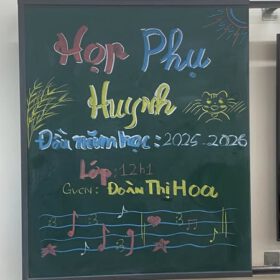 Họp Phụ
Huynh
Đầu năm học: 2025-2026
Lớp: 12h1
GVCN: Đoàn Thị Hoa